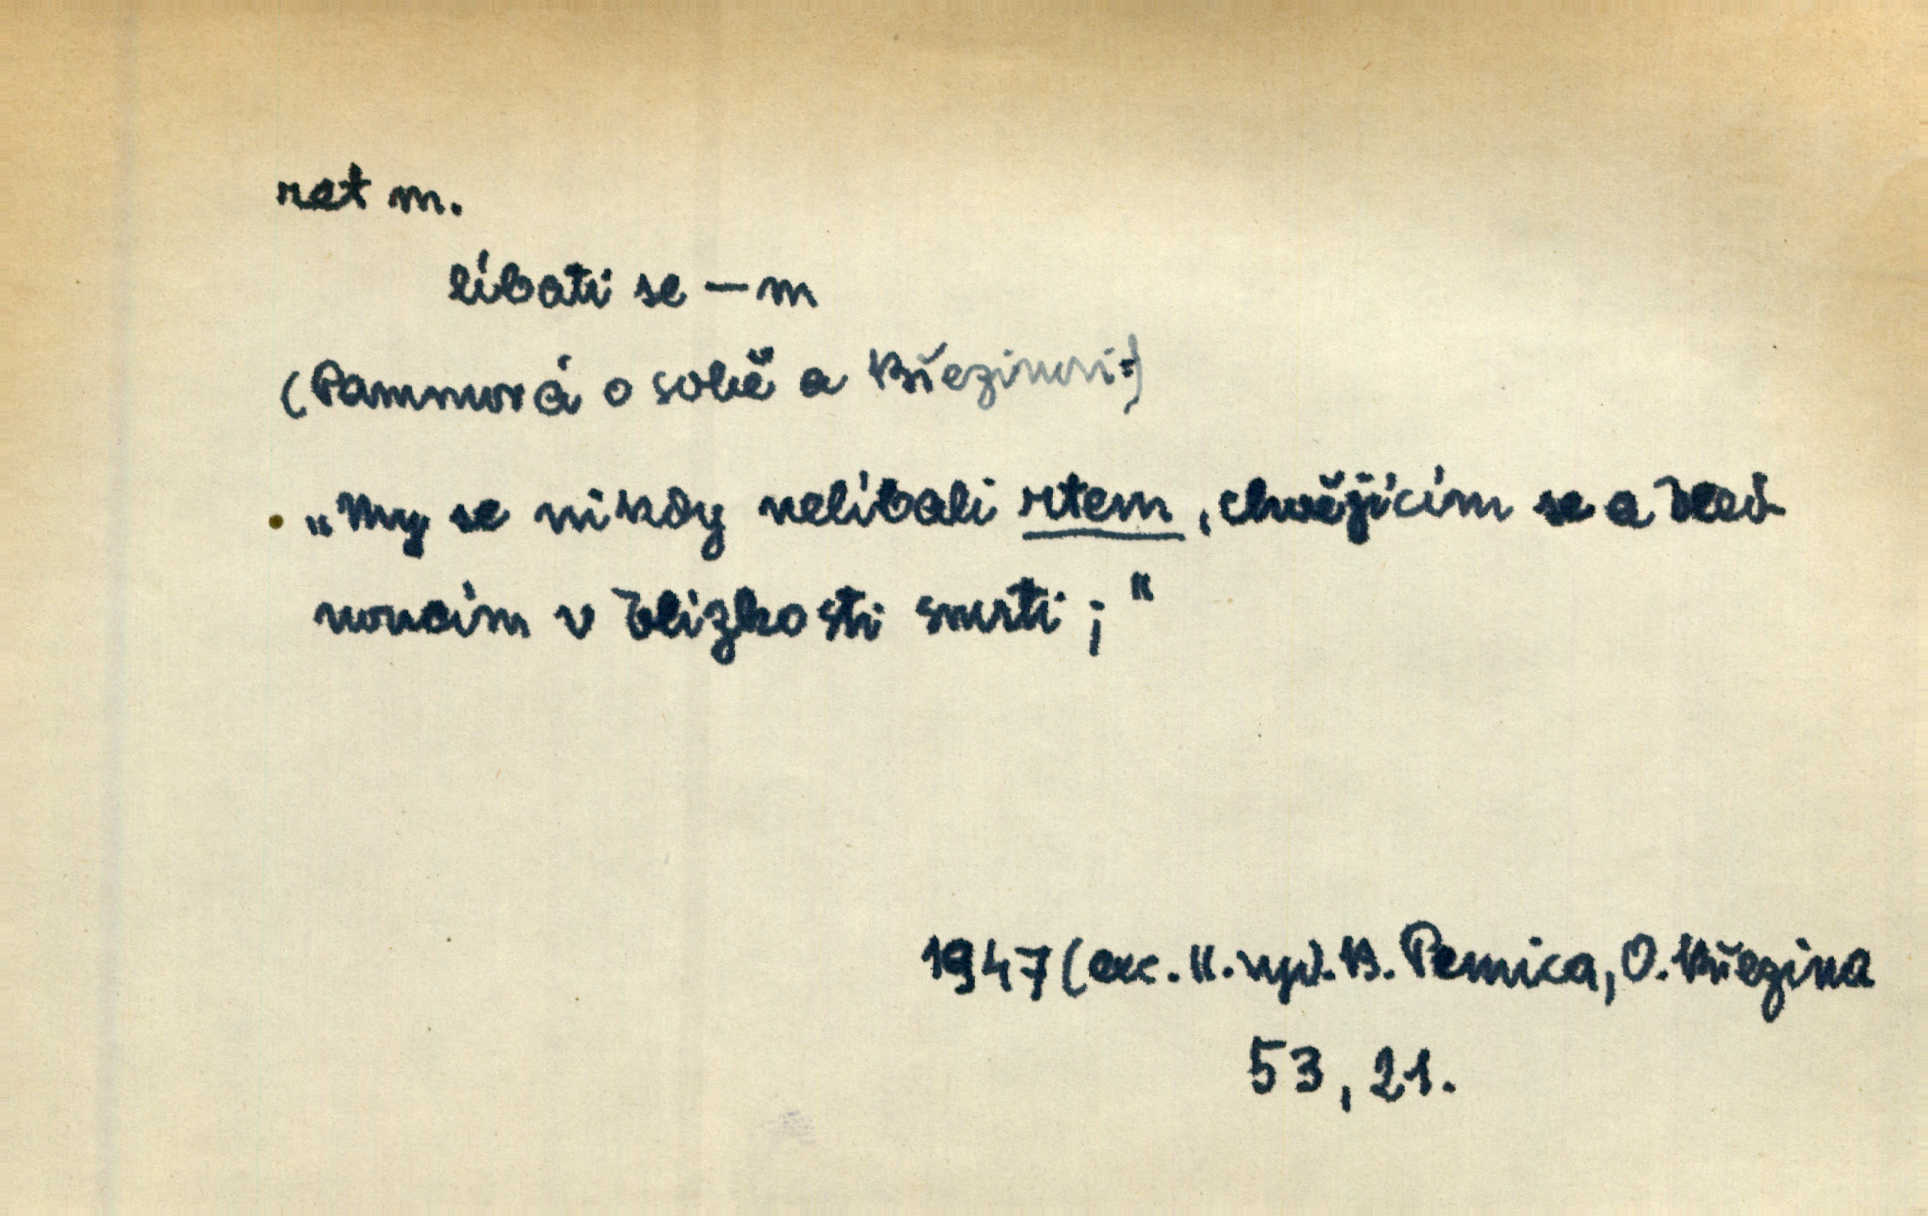 ret m.
líbati se – m
(Pammrová o sobě a Březinovi:)
„My se nikdy nelíbali rtem, chvějícím se a bled-
noucím v blízkosti smrti;"
1947 (exc. II. vyd). B. Pernica, O. Březina
53, 21.